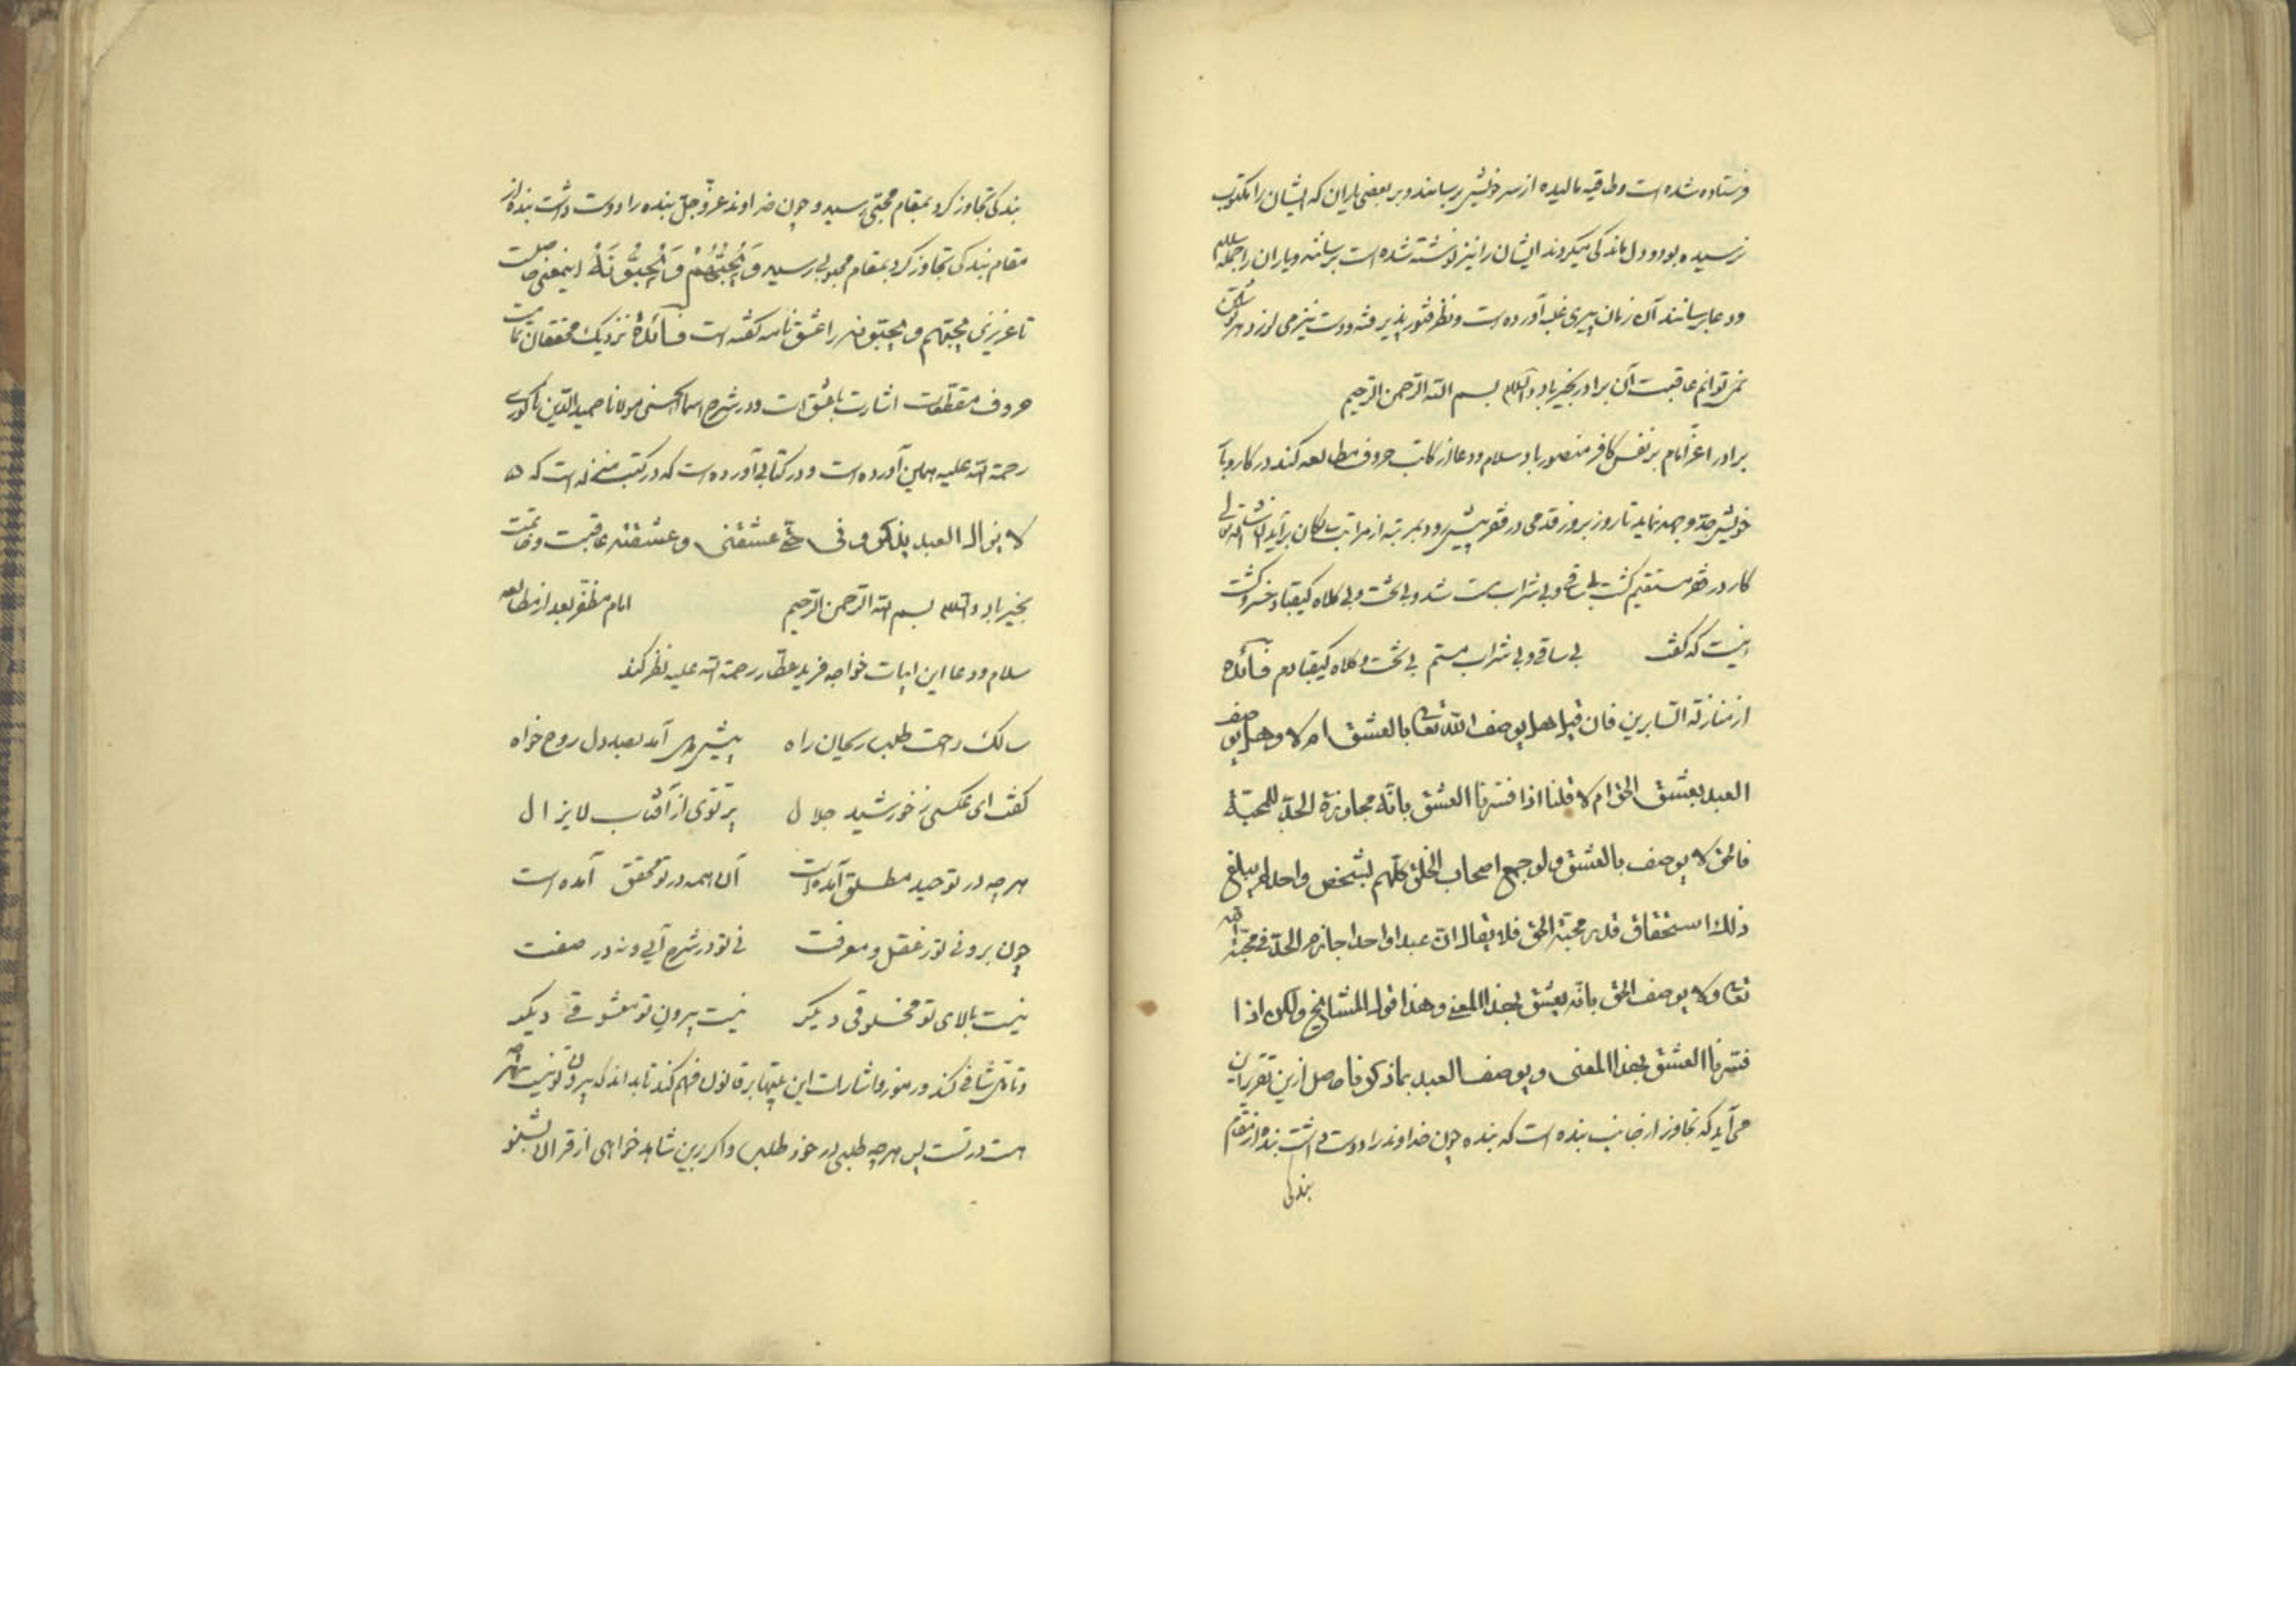 فرستاده شده است و طاقیه مالیده از سر خویش برسانند و بر بعضی یاران که ایشان را مکتوب
نرسیده بود و دل ماندکی میکردند ایشان را نیز نوشته شده است برسانند و یاران را جمله سلام
و دعا برسانند آن زمان پیری غلبه آورده است و نظر فتور پذیرفته و دست نیز می لرزد
نمی توانم عاقبت آن برادر بخیر باد والسلام بسم الله الرحمن الرحیم
برادر اعز امام بر نفس کافر منصور باد سلام و دعا از کاتب حروف مطالعه کند در کار و بار
خویش جد و جهد نماید تا روز بروز قدمی در فقر پیش رود بمرتبه از مراتب برآید ان شاء الله تعالی
کار در فقر مستقیم کشت بی ساقی و بی شراب مست شد و بی تخت و بی کلاه کیقباد و خسرو کشت
اینست که کفت بی ساقی و بی شراب مستم بی تخت و کلاه کیقبادم فائده
از منازل السایرین فان قیل هل یوصف الله تعالی بالعشق ام لا و هل یوصف
العبد بعشق الحق ام لا قلنا اذا فسرنا العشق بانه مجاوزة الحد للمحبة
فالحق لا یوصف بالعشق ولو جمع اصحاب الخلق کلهم لشخص واحد لم یبلغ
ذلک استحقاق قدر محبة الحق فلا یقال ان عبدا واحدا جاوز الحد فی محبة الله
تعالی ولا یوصف الحق بانه یعشق بهذا المعنی و هذا قول المشایخ ولکن اذا
فسرنا العشق بهذا المعنی و یوصف العبد بما ذکرنا حاصل ازین تقریر آن
می آید که تجاوز از جانب بنده است که بنده چون خداوند را دوست داشت بنده از مقام
بندکی
بندکی تجاوز کرد بمقام محبی رسید و چون خداوند عز و جل بنده را دوست داشت بنده از
مقام بندکی تجاوز کرد بمقام محبوبی رسید و یحبهم و یحبونه اینمعنی خاصیت
تا عزیزی یحبهم و یحبونه را عشق نامه کفته است فائده نزدیک محققان تمامت
حروف مقطعات اشارت بعشق است و در شرح اسماء الحسنی مولانا حمید الدین ناکوری
رحمة الله علیه همین آورده است و در کتابی آورده است که در کتب منزله است که
لا یزال العبد یذکرونی حتی عشقنی و عشقته عاقبت و خاتمت
بخیر باد والسلام بسم الله الرحمن الرحیم امام مظفر بعد از مطالعه
سلام و دعا این ابیات خواجه فرید عطار رحمة الله علیه نظر کند
سالک راحت طلب ریحان راه پیش آمد بصد دل روح خواه
کفت ای عکسی ز خورشید جلال پرتوی از آفتاب لایزال
هر چه در توحید مطلق آمده است آن همه در تو محقق آمده است
چون برونی تو ز عقل و معرفت نی تو در شرح آیی و نه در صفت
نیست بالای تو مخلوقی دیکر نیست بیرون تو معشوقی دیکر
و تامل شافی کند و رموز و اشارات این بیتها بر قانون فهم کند تا بداند که بیرون تو نیست هر چه
هست در تست پس هر چه طلبی در خود طلب و اکر برین شاهد خواهی از قرآن بشنو